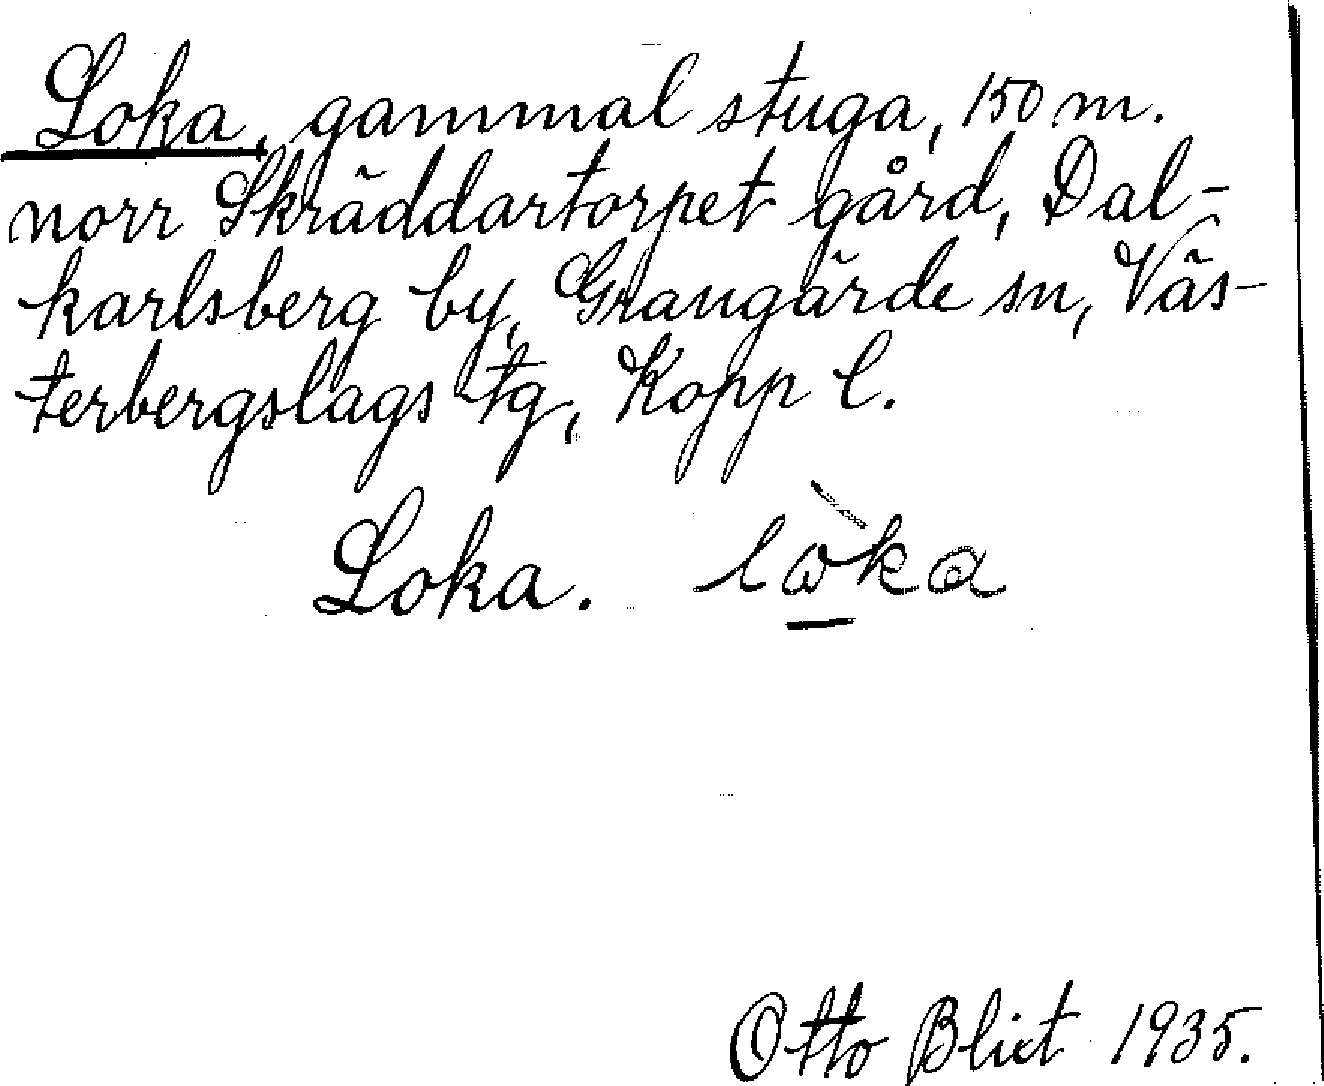 Loka, gammal stuga, 150 m.
norr Skräddartorpet gård, Dal-
karlsberg by, Grangärde sn, Väs-
terbergslags tg, Kopp l.
Loka. lὼka
Otto Blixt 1935.